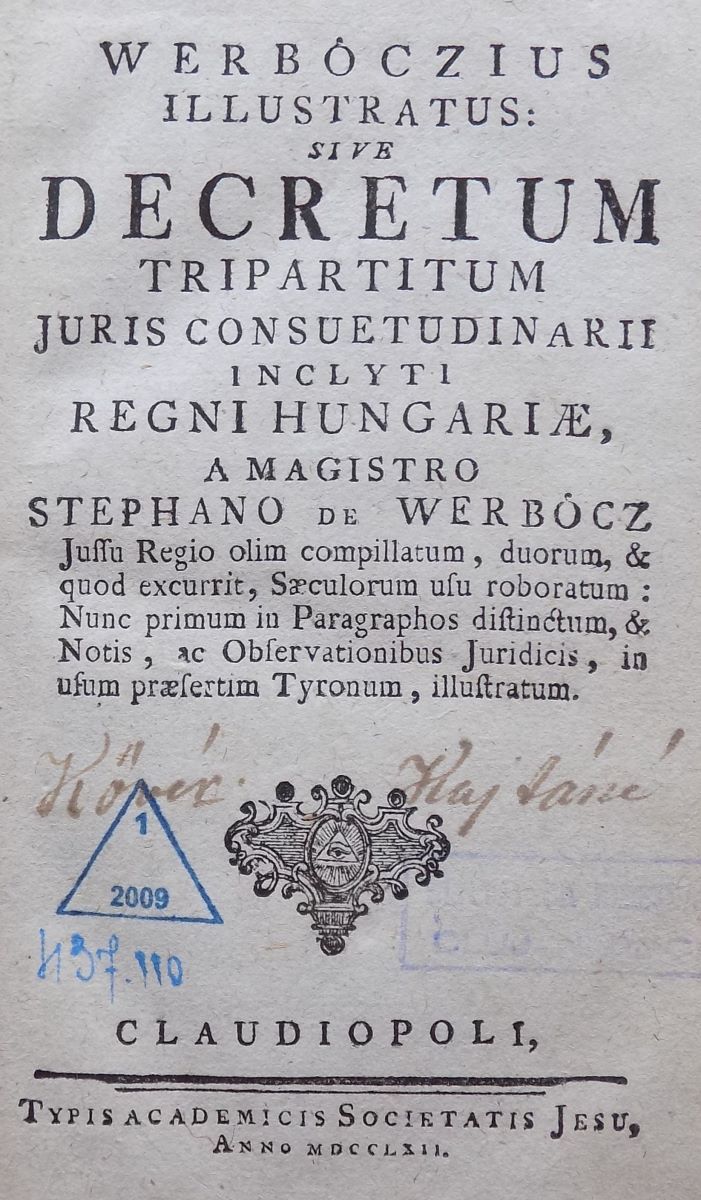 WERBÓCZIUS
ILLUSTRATUS:
SIVE
DECRETUM
TRIPARTITUM
JURIS CONSUETUDINARII
INCLYTI
REGNI HUNGARIÆ,
A MAGISTRO
STEPHANO DE WERBÓCZ
Juſſu Regio olim compillatum, duorum, &
quod excurrit, Sæculorum uſu roboratum:
Nunc primum in Paragraphos diſtinctum, &
Notis, ac Obſervationibus Juridicis, in
uſum præſertim Tyronum, illuſtratum.
Kővér Kajtáné
1
2009
437.110
CLAUDIOPOLI,
TYPIS ACADEMICIS SOCIETATIS JESU,
ANNO MDCCLXII.